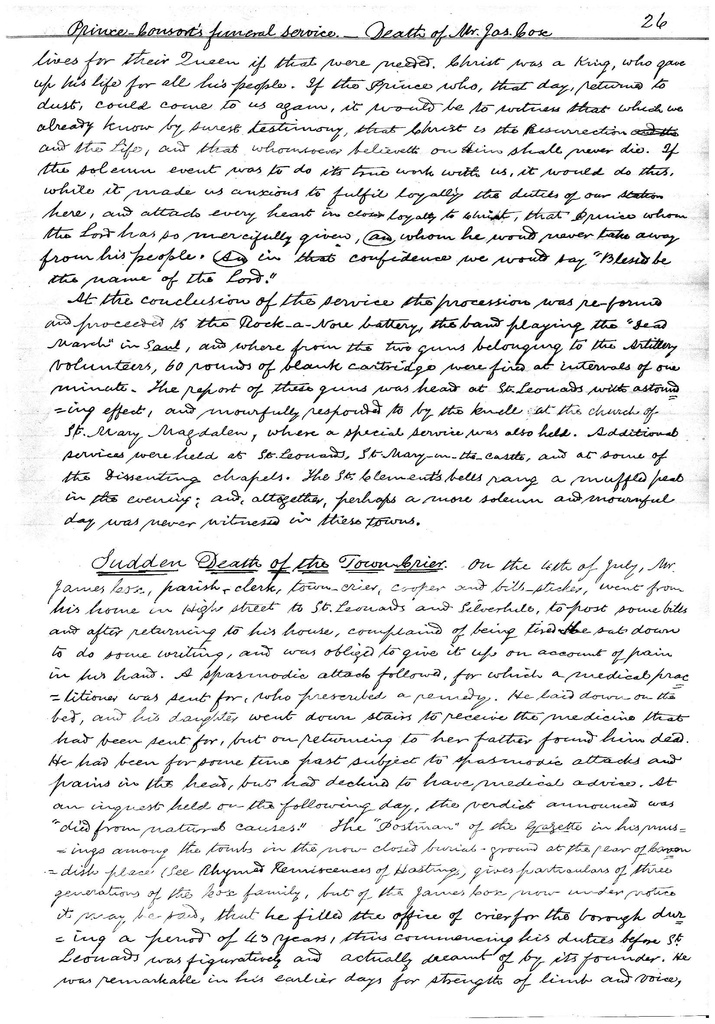 Prince-Consort's funeral service. — Death of Mr. Jas. Cox
26
lives for their Queen if that were needed. Christ was a King, who gave
up his life for all his people. If the Prince who, that day, returned to
dust, could come to us again, it would be to witness that which we
already know by surest testimony, that Christ is the Resurrection and the
and the Life, and that whomsoever believeth on Him shall never die. If
the solemn event was to do its true work with us, it would do this,
while it made us anxious to fulfil loyally the duties of our station
here, and attach every heart in close loyalty to Christ, that Prince whom
the Lord has so mercifully given, and whom he would never take away
from his people. And in that confidence we would say "Blessed be
the name of the Lord."
At the conclusion of the service the procession was re-formed
and proceeded to the Rock-a-Nore battery, the band playing the "Dead
March" in Saul, and where from the two guns belonging to the Artillery
Volunteers, 60 rounds of blank cartridge were fired at intervals of one
minute. The report of these guns was head at St. Leonads with astound
=ing effect, and mournfully responded to by the knell at the church of
St. Mary Magdalen, where a special service was also held. Additional
services were held at St. Leonards, St. Mary-in-the-Castle, and at some of
the Dissenting chapels. The St. Clement's bells rang a muffled peal
in the evening; and, altogether, perhaps a more solemn and mournful
day was never witnessed in these towns.
Sudden Death of the Town Crier. On the 4th of July, Mr.
James Cox, parish-clerk, town-crier, cooper and bill-sticker, went from
his home in High street to St. Leonards and Silverhill, to post some bills
and after returning to his house, complaind of being tired. He sat down
to do some writing, and was obliged to give it up on account of pain
in his hand. A spasmodic attack followed, for which a medical prac=
=titioner was sent for, who prescribed a remedy. He laid down on the
bed, and his daughter went down stairs to receive the medicine that
had been sent for, but on returning to her father found him dead.
He had been for some time past subject to spasmodic attacks and
pains in the head, but had declined to have medical advice. At
an inquest held on the following day, the verdict announced was
"died from natural causes." The "Postman" of the Gazette in his mus=
=ings among the tombs in the now closed burial-ground at the rear of Caven
=dish place (See Rhymed Reminiscences of Hastings), gives particulars of three
generations of the Cox family, but of the James Cox now under notice
it may be said, that he filled the office of crier for the borough dur=
=ing a period of 43 years, thus commencing his duties before St.
Leonards was figuratively and actually dreamt of by its founder. He
was remarkable in his earlier days for strength of limb and voice,